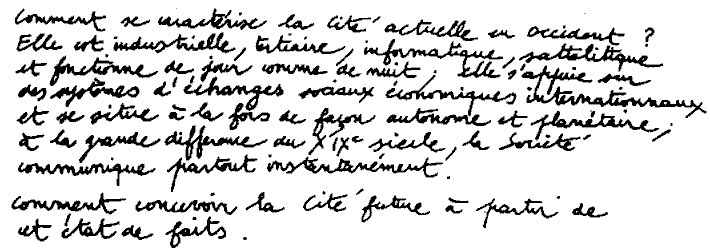 Comment se caractérise la Cité actuelle en Occident ?
Elle est industrielle, tertiaire, informatique, sattelitique
et fonctionne de jour comme de nuit ; elle s'appuie sur
des systèmes d'échanges sociaux économiques internationnaux
et se situe à la fois de façon autonome et planétaire ;
à la grande différence du XIXe siècle, la Société
communique partout instantanément.
Comment concevoir la Cité future à partir de
cet état de faits.